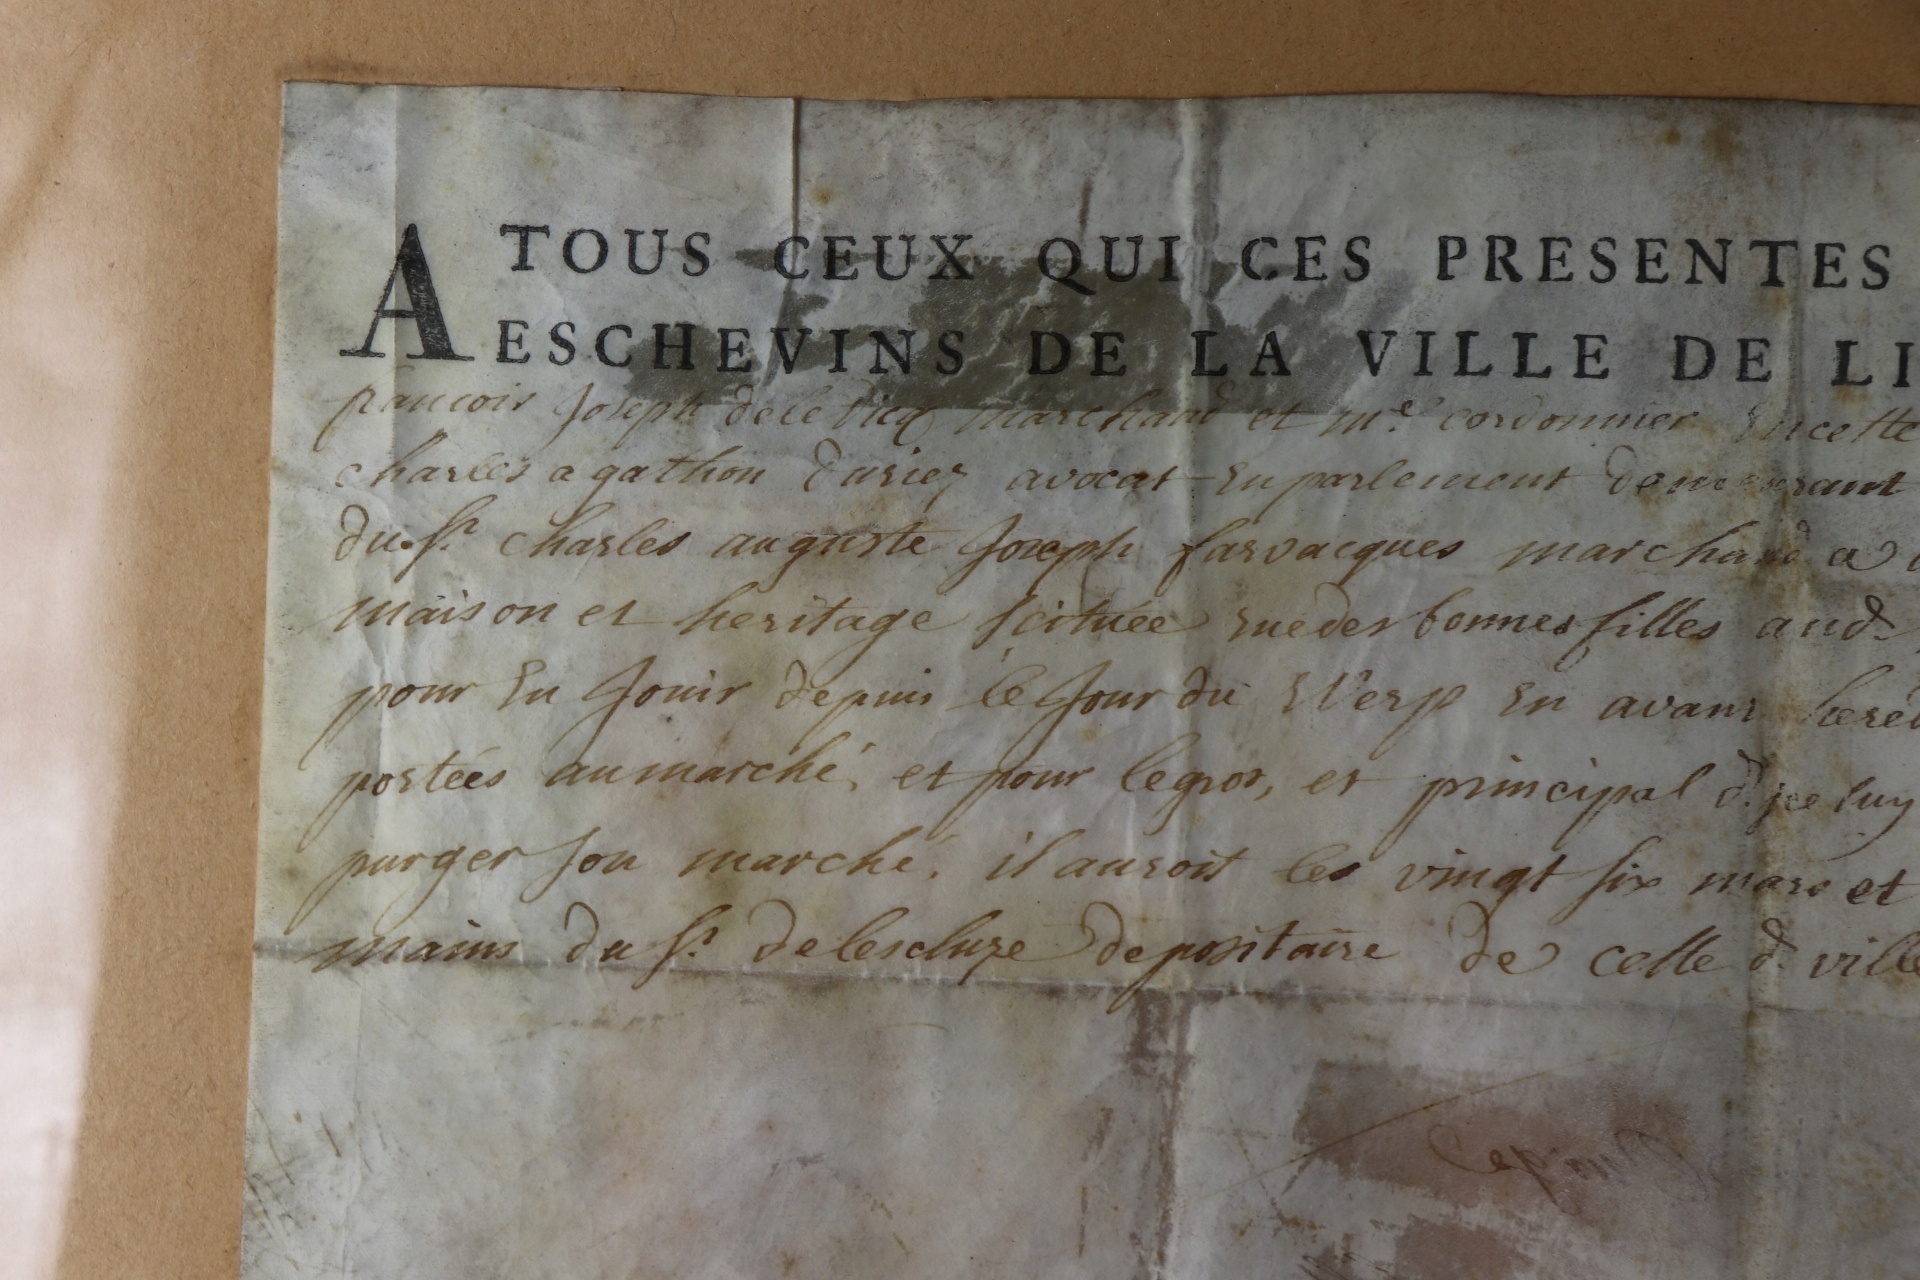 A TOUS CEUX QUI CES PRESENTES
ESCHEVINS DE LA VILLE DE LI
francois Joseph delebicq marchand et m.e cordonnier Encette
charles agathon duriez avocat En parlement demeurant
du Sr. charles auguste Joseph farvacques marchand a
maison et heritage scituée rue des bonnes filles aud.
pour En Jouir depuis le Jour du Werp En avant hered
portées au marché, et pour le gros, et principal d'jceluy
purger son marché, il auroit les vingt six mars et
mains du Sr. delescluze depositaire de cette d. ville